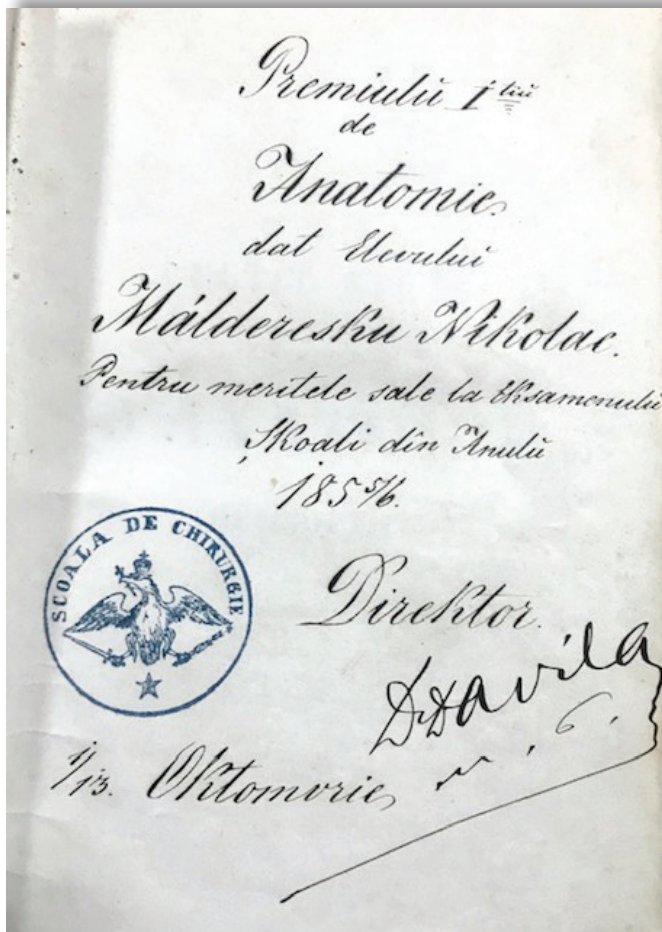 Premiulŭ I tiŭ
de
Anatomie
dat Elevului
Mălderesku Nikolae.
Pentru meritele sale la Eksamenulŭ
Șkoali din Anulŭ
185 5/6.
SCOALA DE CHIRURGIE
Direktor.
Dr Davila
1/13. Oktomvrie